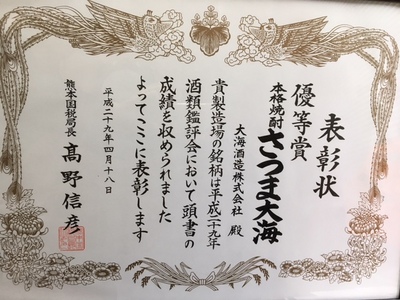 表彰状
優等賞
本格焼酎 さつま大海
大海酒造株式会社 殿
貴製造場の銘柄は平成二十九年
酒類鑑評会において頭書の
成績を収められました
よってここに表彰します
平成二十九年四月十八日
熊本国税局長 髙野信彦